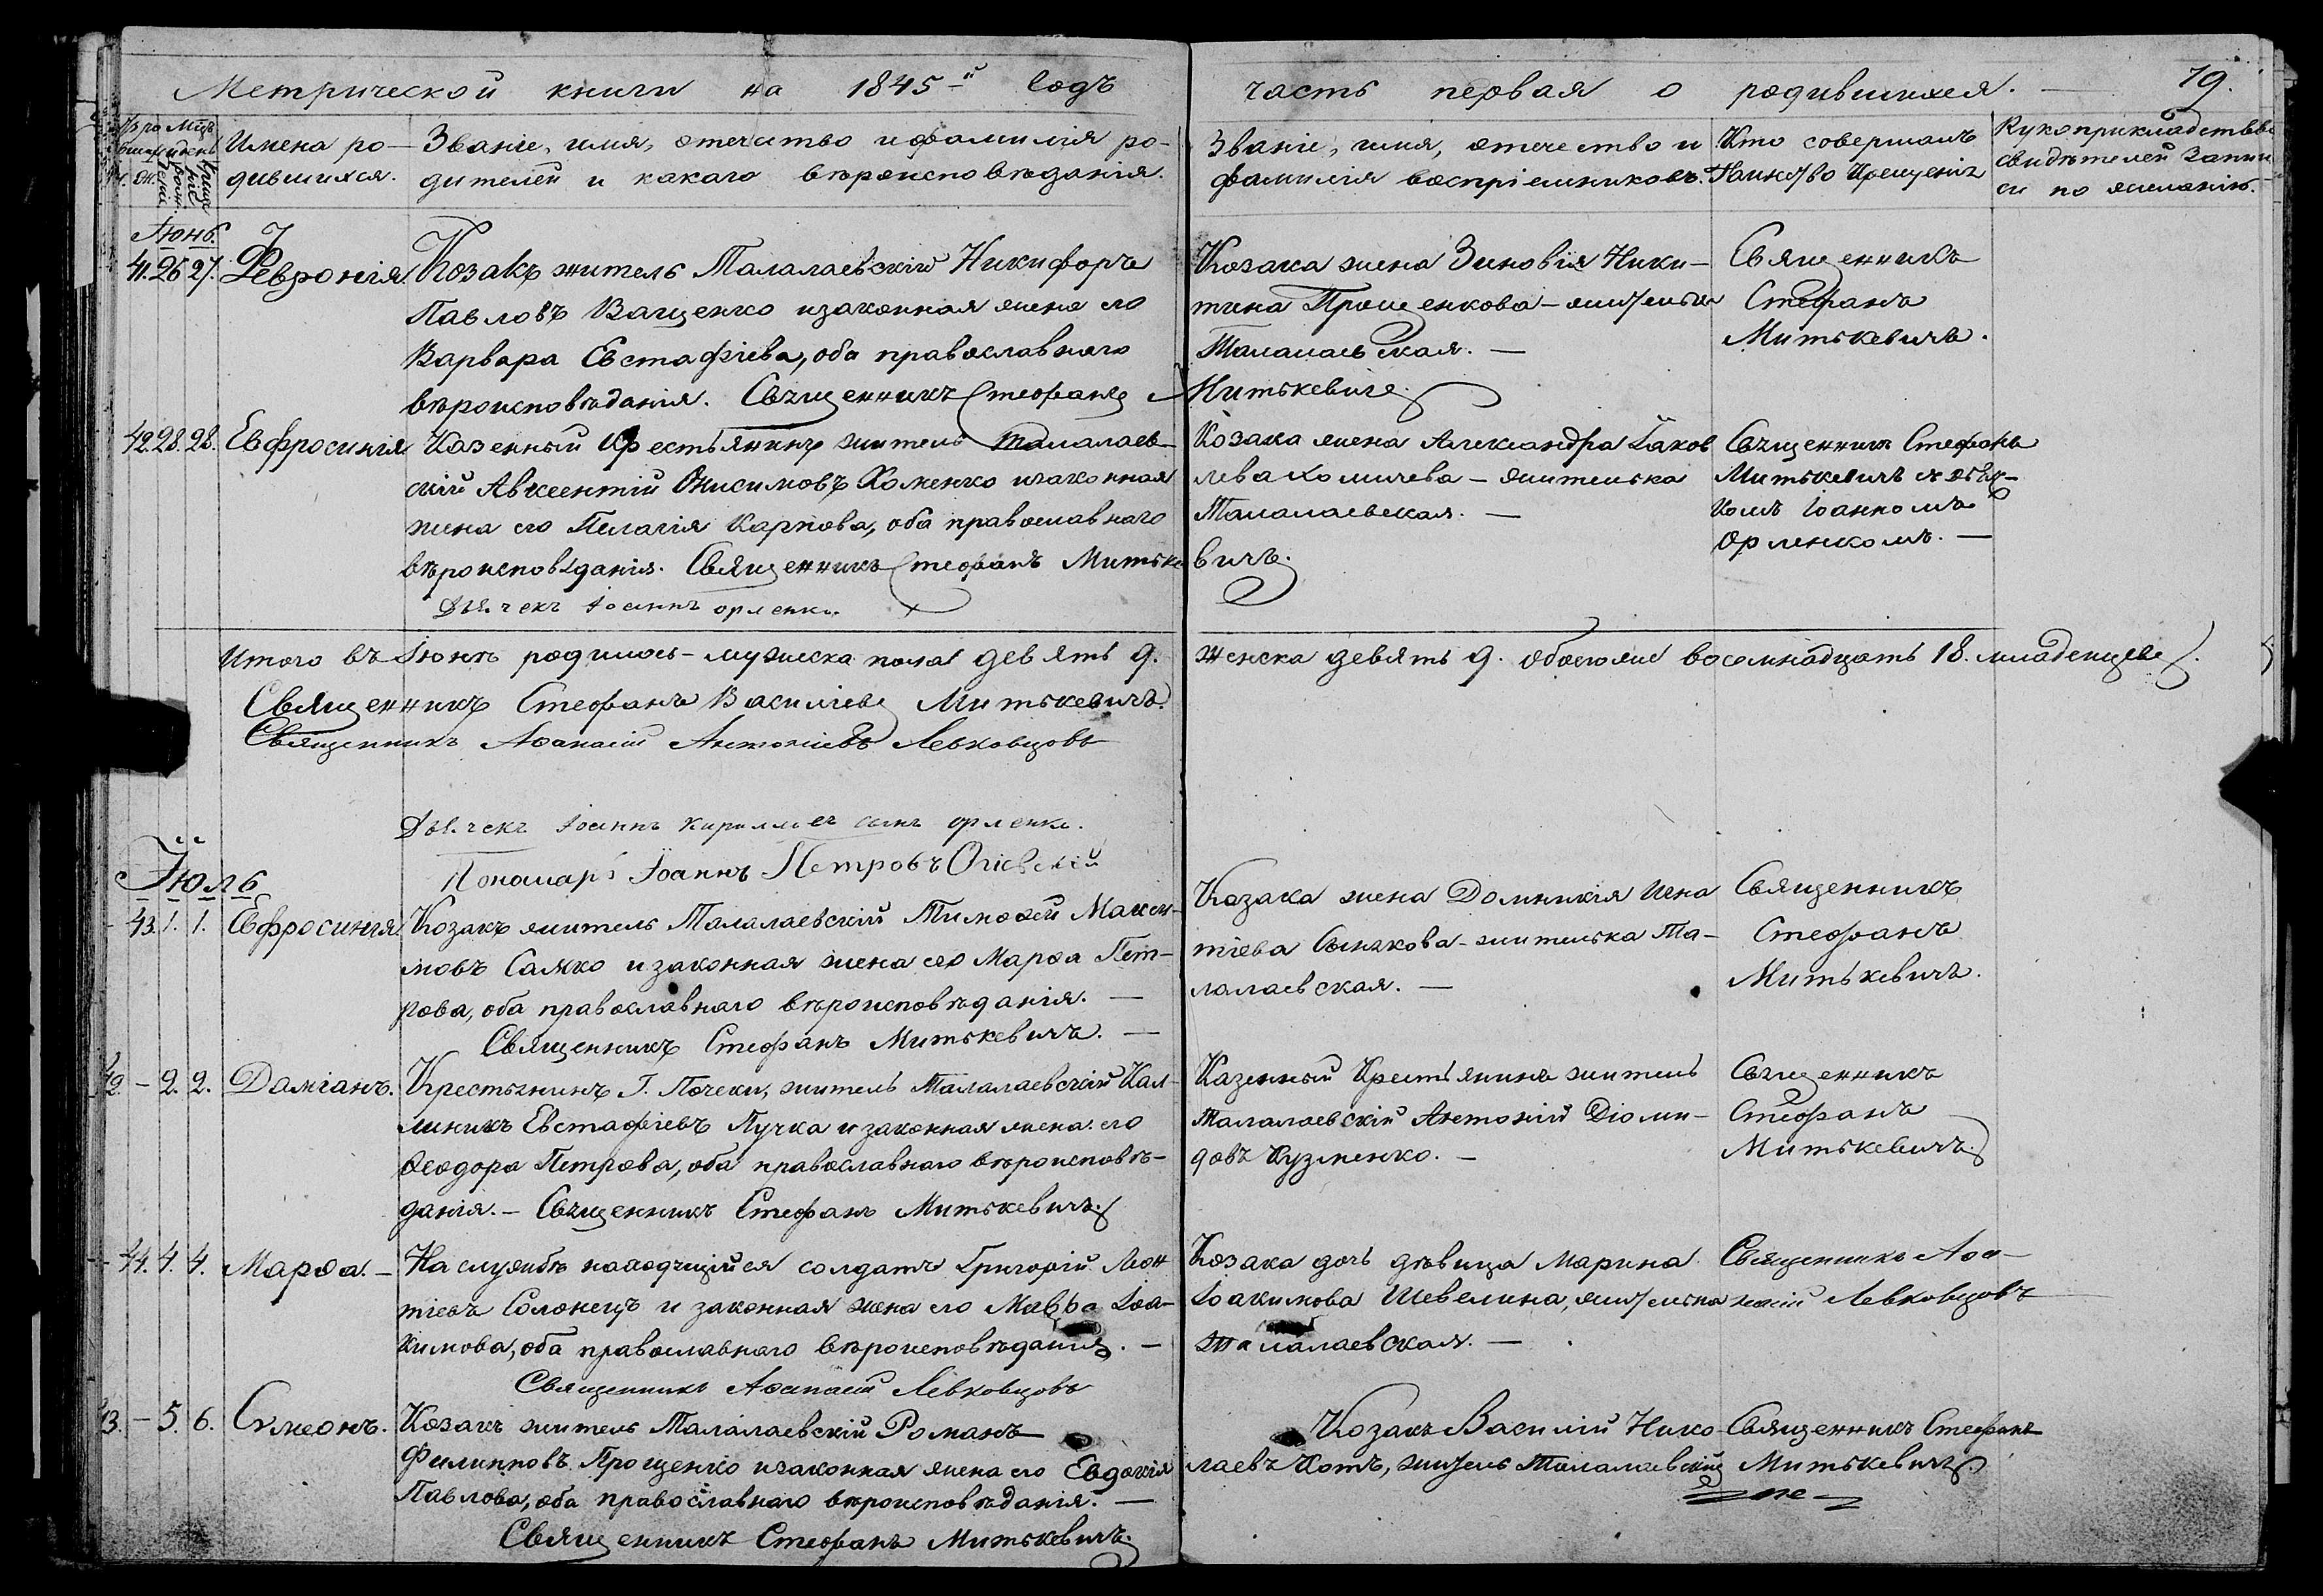 Метрической книги на 1845-й годъ
часть первая о родившихся. 19.
Имена ро-
дившихся.
Званіе, имя, отечество и фамилія ро-
дителей и какаго вѣроисповѣданія.
Званіе, имя, отечество и
фамилія воспріемниковъ.
Кто совершалъ
Таинство Крещенія
Рукоприкладство
свидѣтелей запи
си по желанію.
Іюнь.
41. 26 27. Февронія.
Козакъ житель Талалаевскій Никифоръ
Павловъ Ващенко изаконная жена его
Варвара Евстафіева, оба православнаго
вѣроисповѣданія. Священникъ Стефанъ Митькевичъ
Козака жена Зиновія Ники-
тина Прощенкова - жителька
Талалаевская. —
Священникъ
Стефанъ
Митькевичъ.
42. 28. 28. Евфросинія
Казенный Крестьянинъ житель Талалаев-
скій Авксентій Онисимовъ Хоменко изаконная
жена его Пелагія Карпова, оба православнаго
вѣроисповѣданія. Священникъ Стефанъ Митькевичъ.
Дьячекъ Іоаннъ орленко.
Козака жена Александра Іаков
лева Хомичева - жителька
Талалаевская. —
Священникъ Стефанъ
Митькевичъ съ дьяч-
комъ Іоанномъ
Орленкомъ. —
Итого въ Іюнѣ родилось - мужеска пола девять 9. женска девять 9. обоего восемнадцать 18. младенцевъ.
Священникъ Стефанъ Василіевъ Митькевичъ.
Священникъ Аѳанасій Антоніевъ Левковцовъ
Дьячекъ Іоаннъ Кирилловъ сынъ орленко.
Пономарь Іоаннъ Петровъ Огіевскій
Іюль
43. 1. 1. Евфросинія.
Козакъ житель Талалаевскій Тимоѳей Макси-
мовъ Самко и законная жена его Марѳа Пет-
рова, оба православнаго вѣроисповѣданія. —
Священникъ Стефанъ Митькевичъ. —
Козака жена Домникія Игна
тіева - жителька Та-
лалаевская. —
Священникъ
Стефанъ
Митькевичъ.
42. - 2. 2. Даміанъ.
Крестьянинъ Г. Почеки, житель Талалаевскій Кал-
линикъ Евстафіевъ Пучка и законная жена его
Ѳеодора Петрова, оба православнаго вѣроисповѣ-
данія. - Священникъ Стефанъ Митькевичъ.
Казенный Крестьянинъ житель
Талалаевскій Антоній Діоми-
довъ Кузменко. —
Священникъ
Стефанъ
Митькевичъ.
44. 4. 4. Марѳа. -
На службѣ находящійся солдатъ Григорій Леон
тіевъ Солонецъ и законная жена его Мавра Іоа-
кимова, оба православнаго вѣроисповѣданія. —
Священникъ Аѳанасій Левковцовъ
Козака дочь дѣвица Марина
Іоакимова Шевелина, жителька
талалаевская. —
Священникъ Аѳа-
насій Левковцовъ
43. - 5. 6. Сѵмеонъ.
Козакъ житель Талалаевскій Романъ
Филипповъ Прощенко изаконная жена его Евдокія
Павлова, оба православнаго вѣроисповѣданія. —
Священникъ Стефанъ Митькевичъ.
Козакъ Василій Нико
лаевъ Котъ, житель Талалаевскій
Священникъ Стефанъ
Митькевичъ.